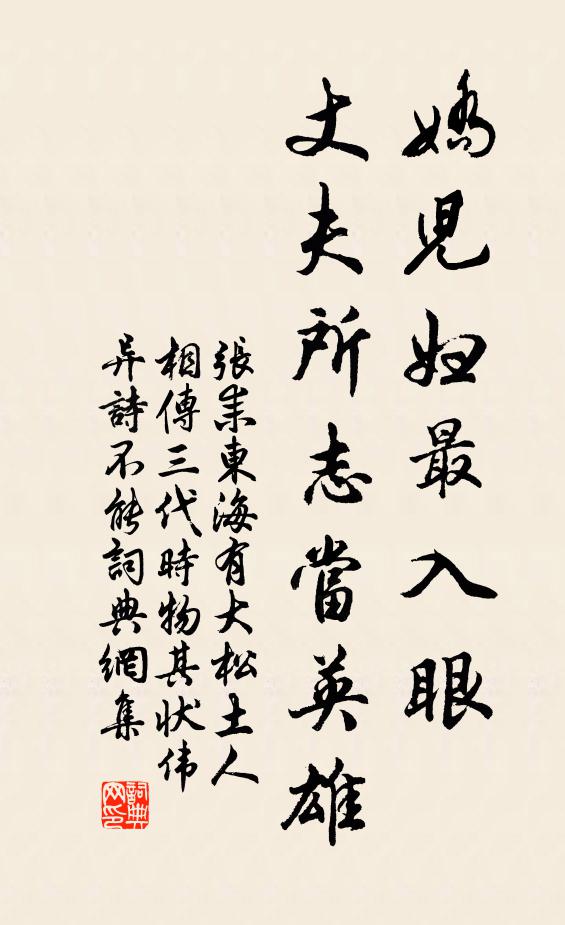 嬌兒妇最入眼
丈夫所志當英雄
張耒東海有大松土人
相傳三代時物其状伟
异詩不能詞典網集
詞典
网印